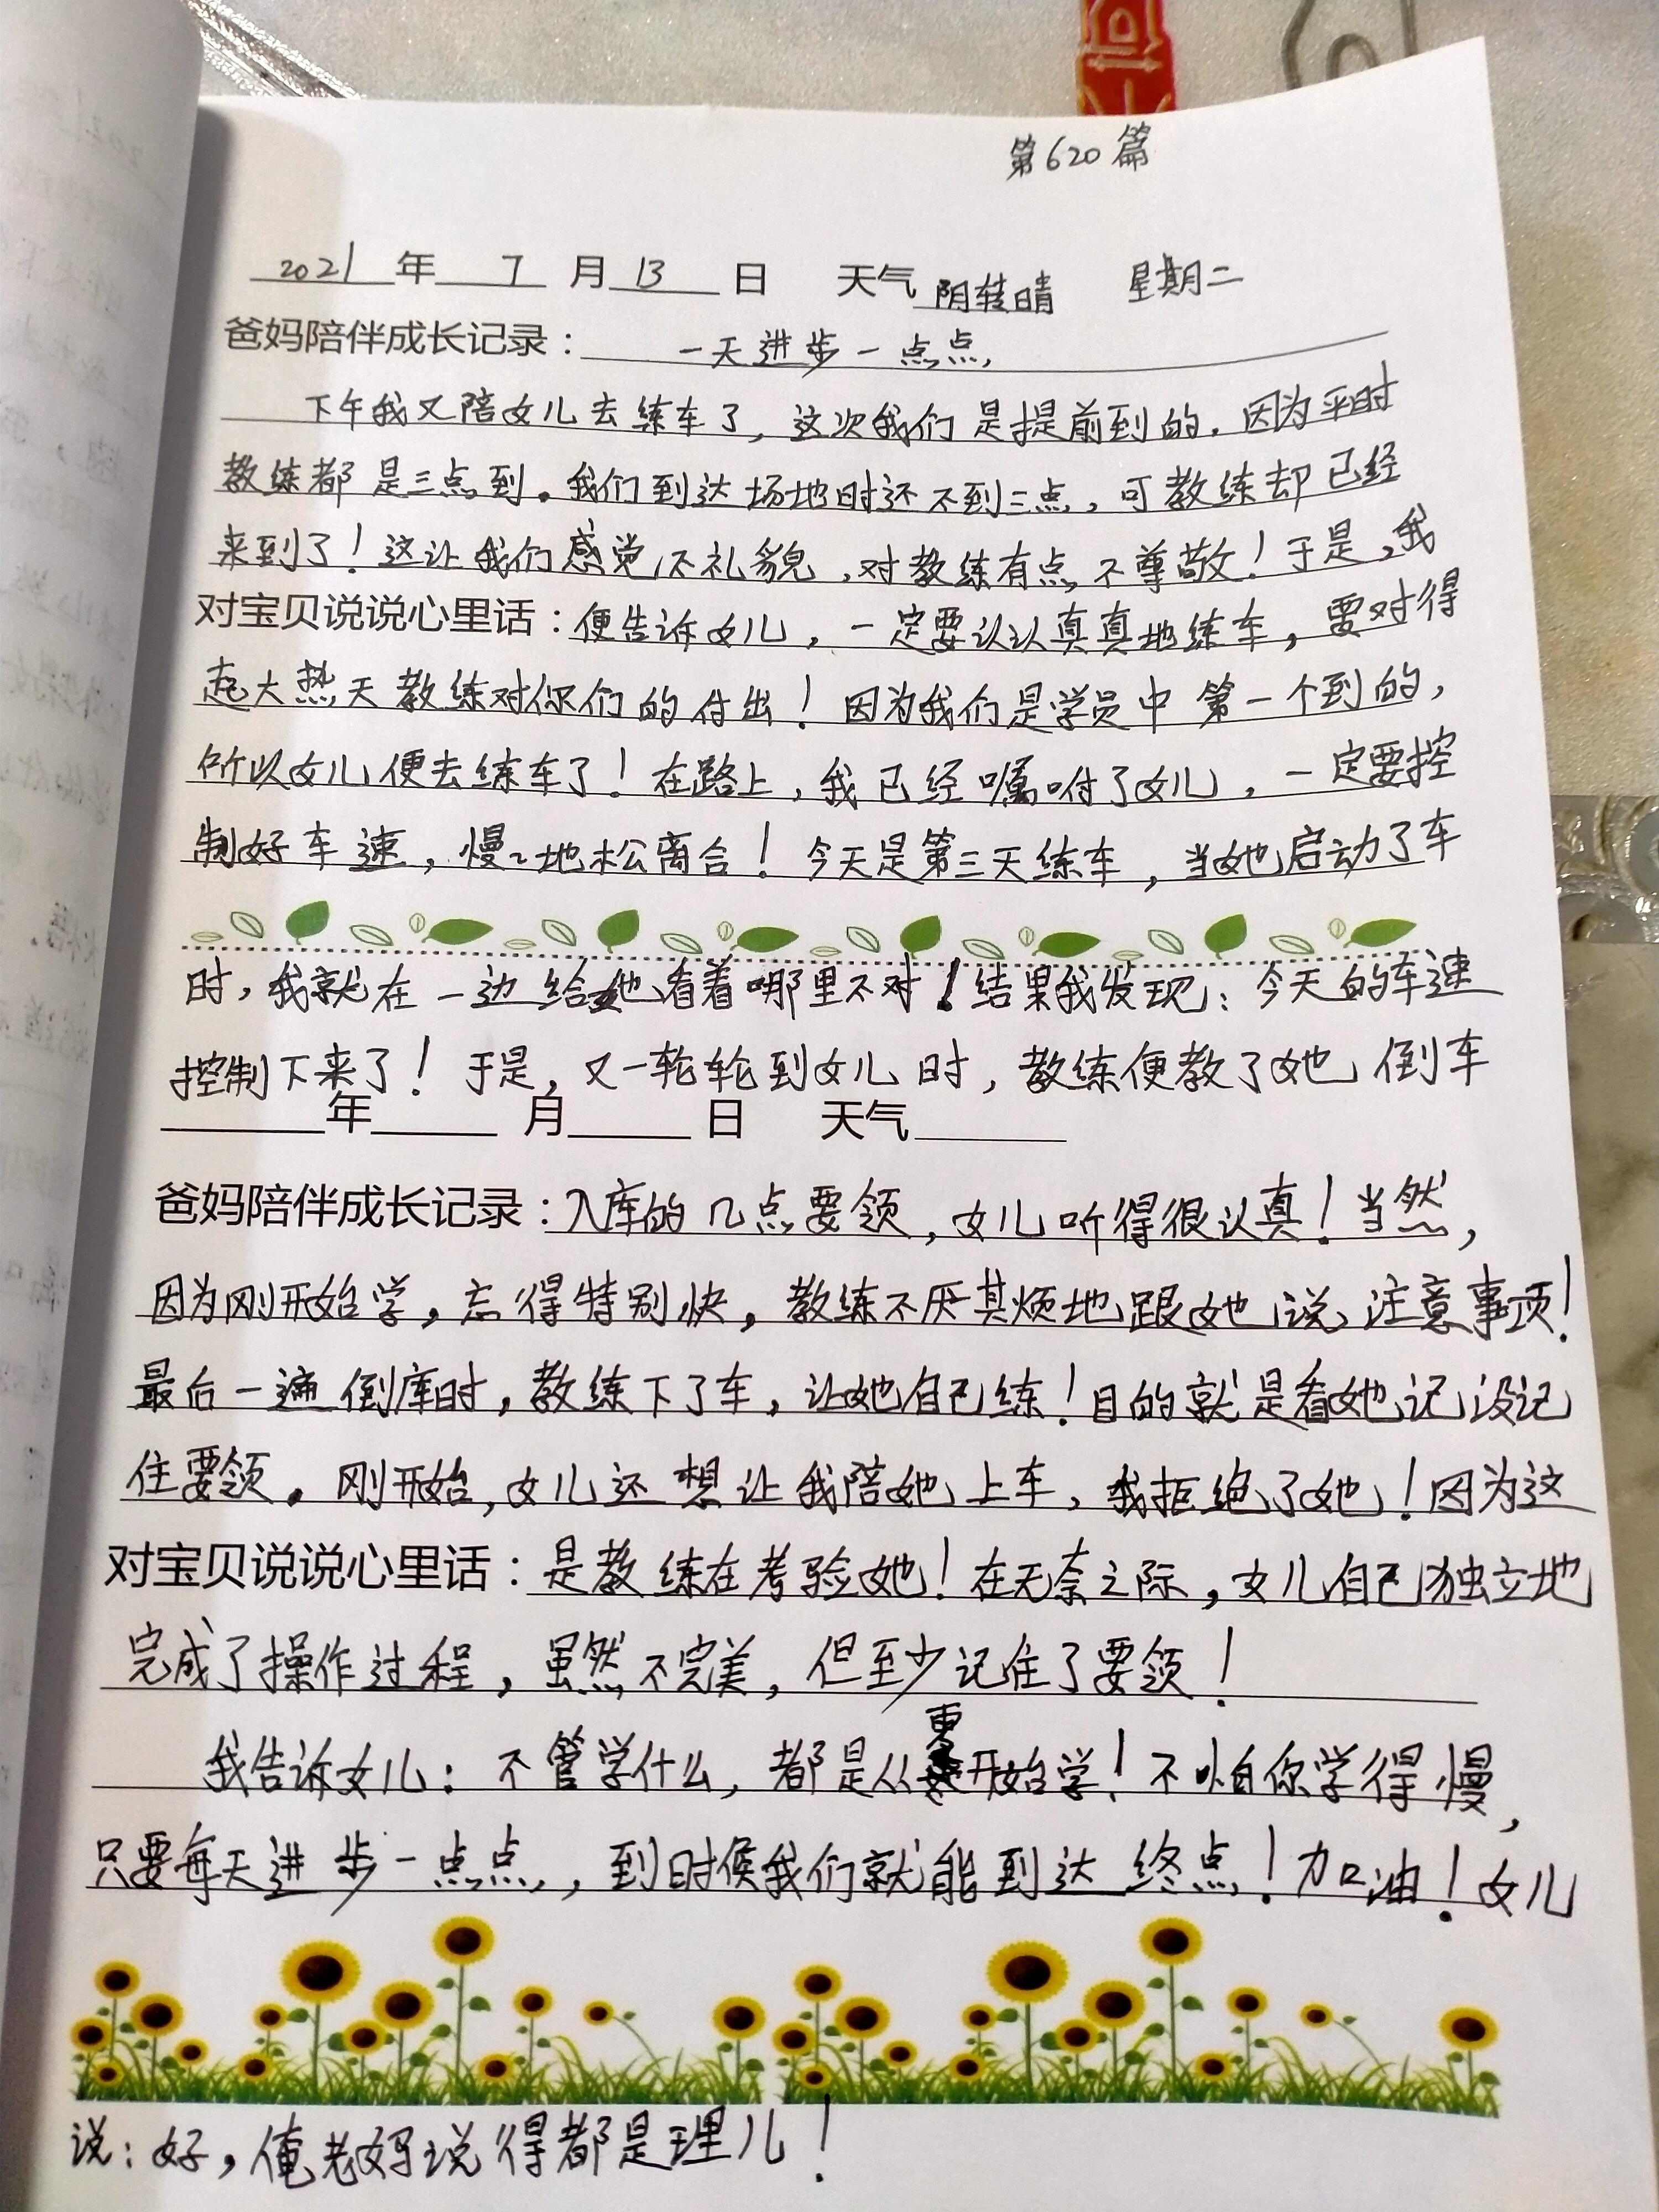 第620篇
2021年7月13日 天气阴转晴 星期二
爸妈陪伴成长记录：一天进步一点点
下午我又陪女儿去练车了，这次我们是提前到的。因为平时
教练都是三点到。我们到达场地时还不到三点，可教练却已经
来到了！这让我们感觉不礼貌，对教练有点不尊敬！于是，我
对宝贝说说心里话：便告诉女儿，一定要认认真真地练车，要对得
起大热天教练对你们的付出！因为我们是学员中第一个到的，
所以女儿便去练车了！在路上，我已经嘱咐了女儿，一定要控
制好车速，慢慢地松离合！今天是第三天练车，当她启动了车
时，我就在一边给她看着哪里不对！结果我发现：今天的车速
控制下来了！于是，又一轮轮到女儿时，教练便教了她倒车
年 月 日 天气
爸妈陪伴成长记录：入库的几点要领，女儿听得很认真！当然，
因为刚开始学，忘得特别快，教练不厌其烦地跟她说注意事项！
最后一遍倒库时，教练下了车，让她自己练！目的就是看她记没记
住要领。刚开始，女儿还想让我陪她上车，我拒绝了她！因为这
对宝贝说说心里话：是教练在考验她！在无奈之际，女儿自己独立地
完成了操作过程，虽然不完美，但至少记住了要领！
我告诉女儿：不管学什么，都是从零开始学！不怕你学得慢，
只要每天进步一点点，到时候我们就能到达终点！加油！女儿
说：好，俺老妈说得都是理儿！